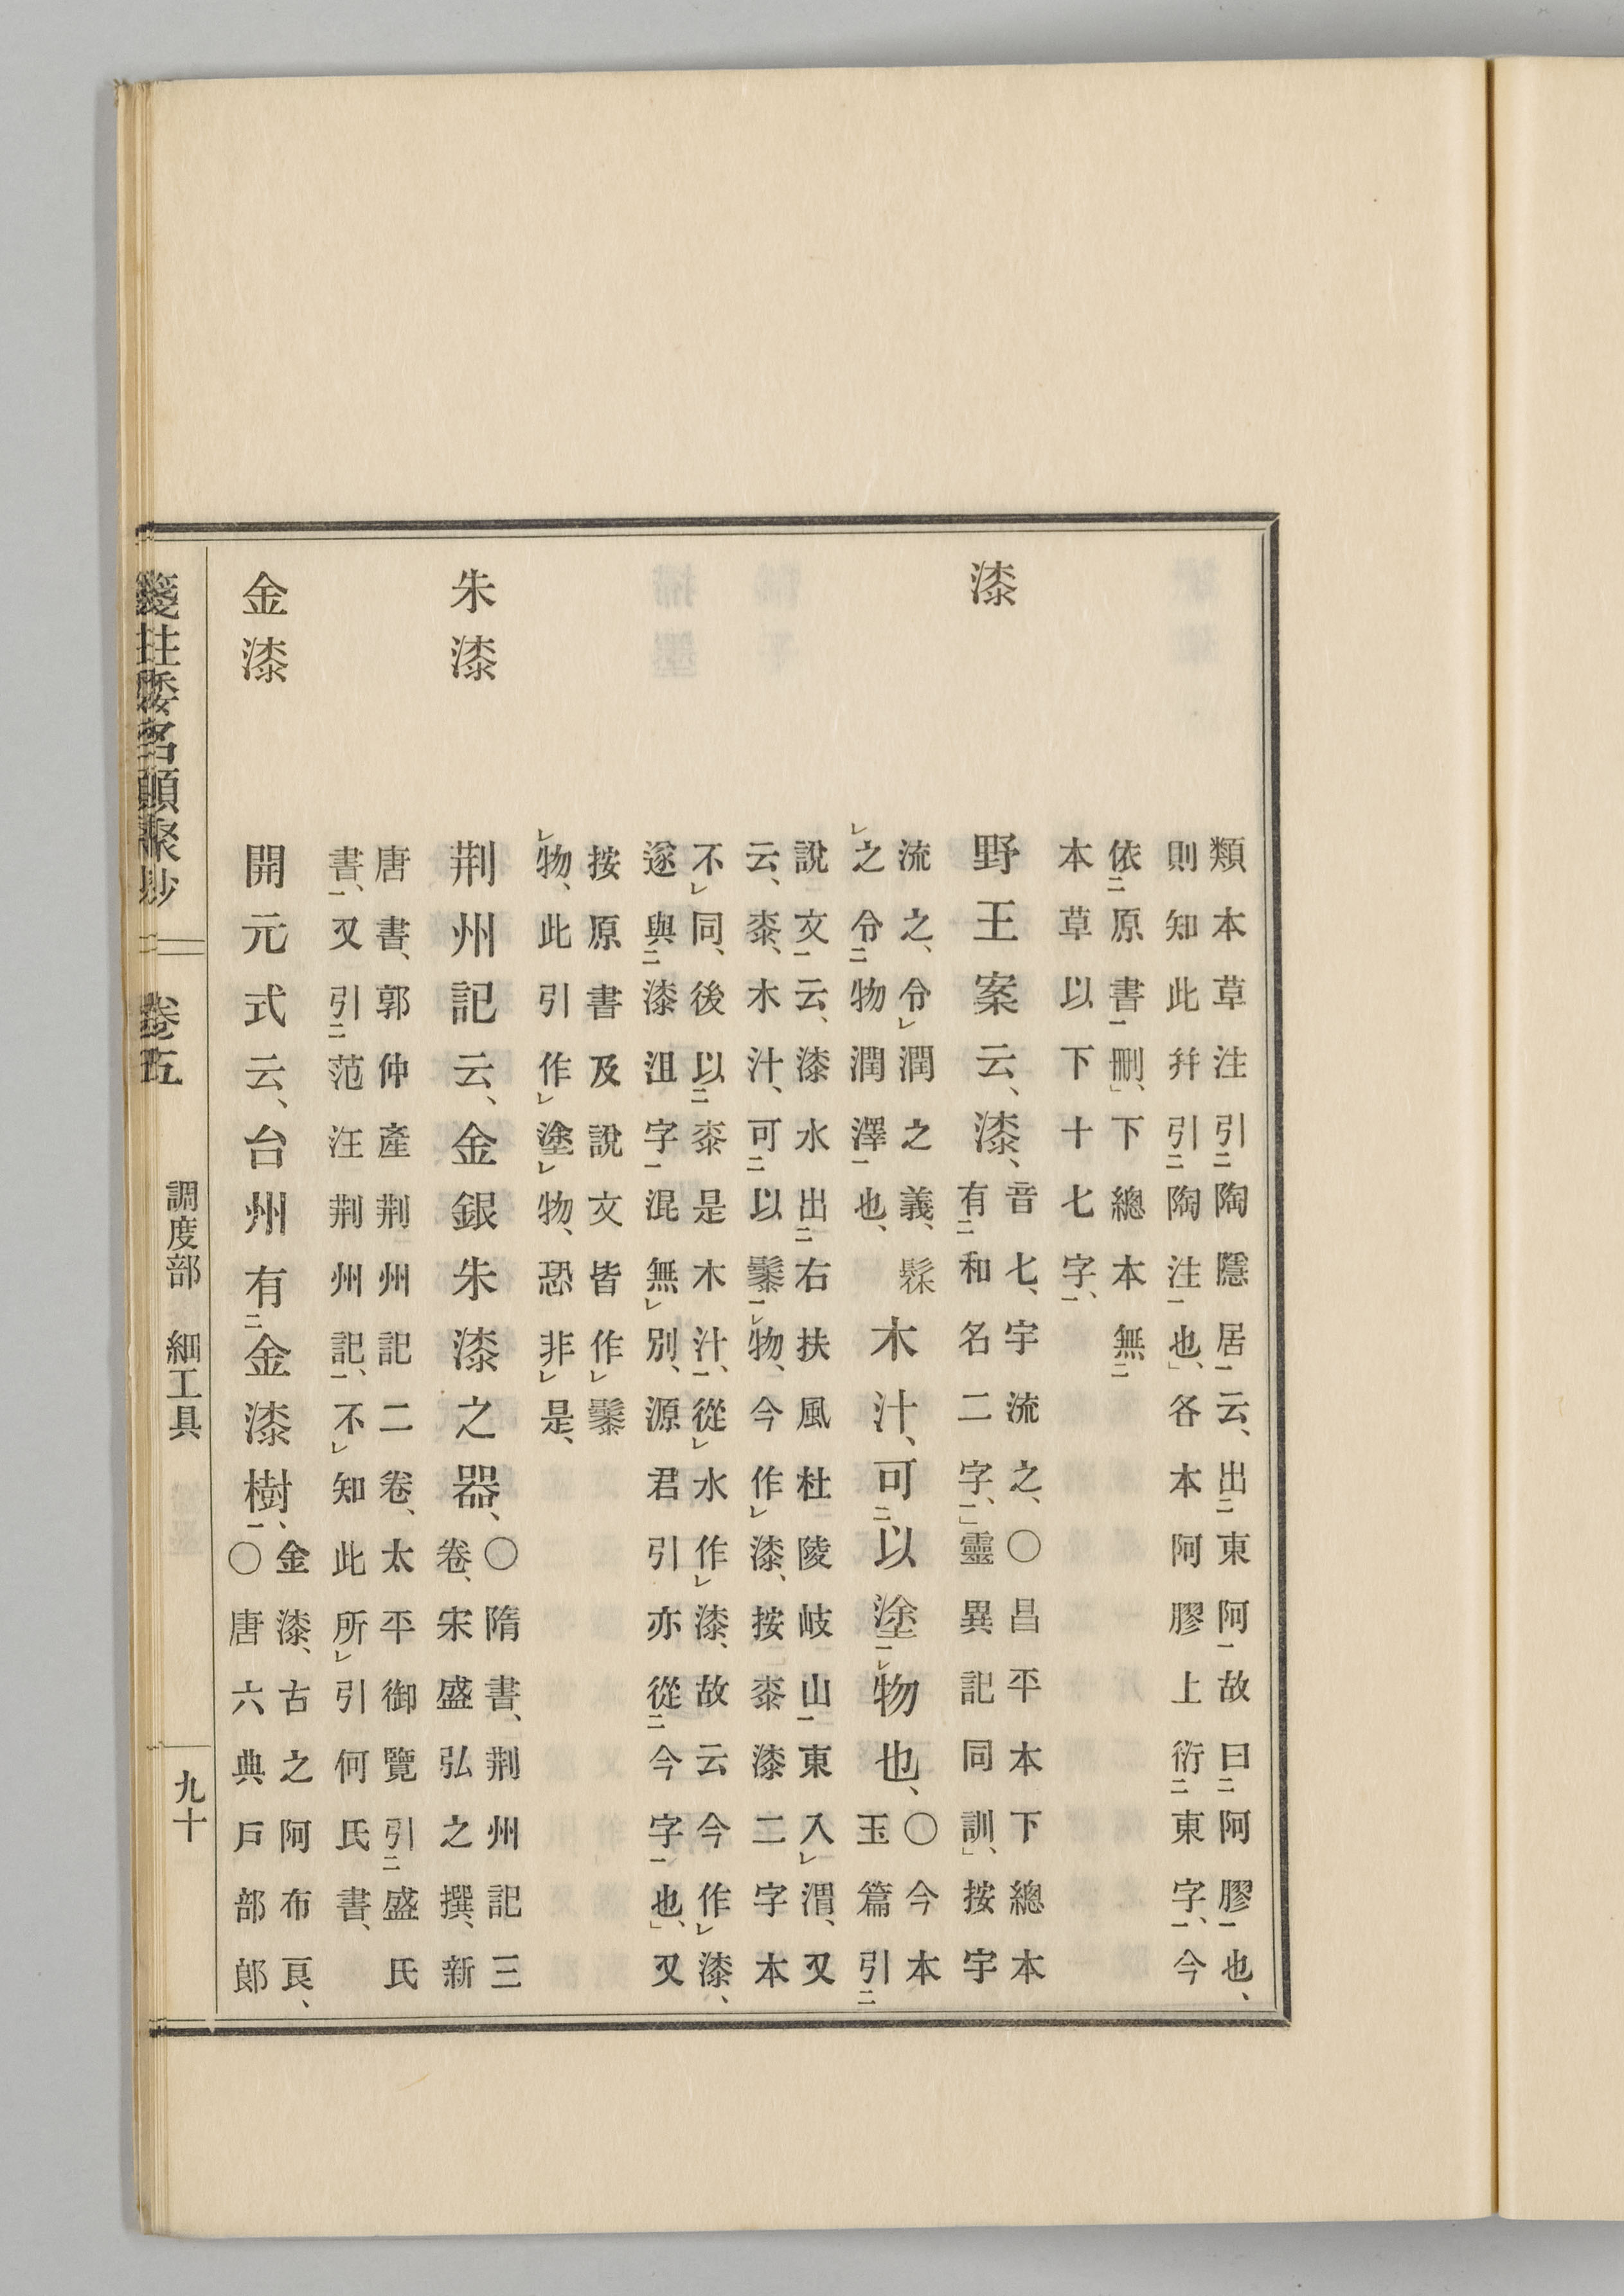 類本草注引㆓陶隱居㆒云、出㆓東阿㆒故曰㆓阿膠㆒也、
則知此幷引㆓陶注㆒也、」各本阿膠上衍㆓東字㆒、今
依㆓原書㆒刪、」下總本無㆓
本草以下十七字㆒、
漆
野王案云、漆、
音七、宇流之、〇昌平本下總本
有㆓和名二字㆒、」靈異記同訓、」按宇
流之、令㆑潤之義、髹
㆑之令㆓物潤澤㆒也、
木汁、可㆓以塗㆒㆑物也、
〇今本
玉篇引㆓
說文㆒云、漆水出㆓右扶風杜陵岐山㆒東入㆑渭、又
云、桼、木汁、可㆓以䰍㆒㆑物、今作㆑漆、按桼漆二字本
不㆑同、後以㆓桼是木汁㆒、從㆑水作㆑漆、故云今作㆑漆、
遂與㆓漆沮字㆒混無㆑別、源君引亦從㆓今字㆒也、」又
按原書及說文皆作㆑䰍
㆑物、此引作㆑塗㆑物、恐非㆑是、
朱漆
荆州記云、金銀朱漆之器、
〇隋書、荆州記三
卷、宋盛弘之撰、新
唐書、郭仲產荆州記二卷、太平御覽引㆓盛氏
書㆒、又引㆓范汪荆州記㆒、不㆑知此所㆑引何氏書、
金漆
開元式云、台州有㆓金漆樹㆒、
金漆、古之阿布良、
〇唐六典戶部郞
箋注倭名類聚抄 卷五 調度部 細工具 九十